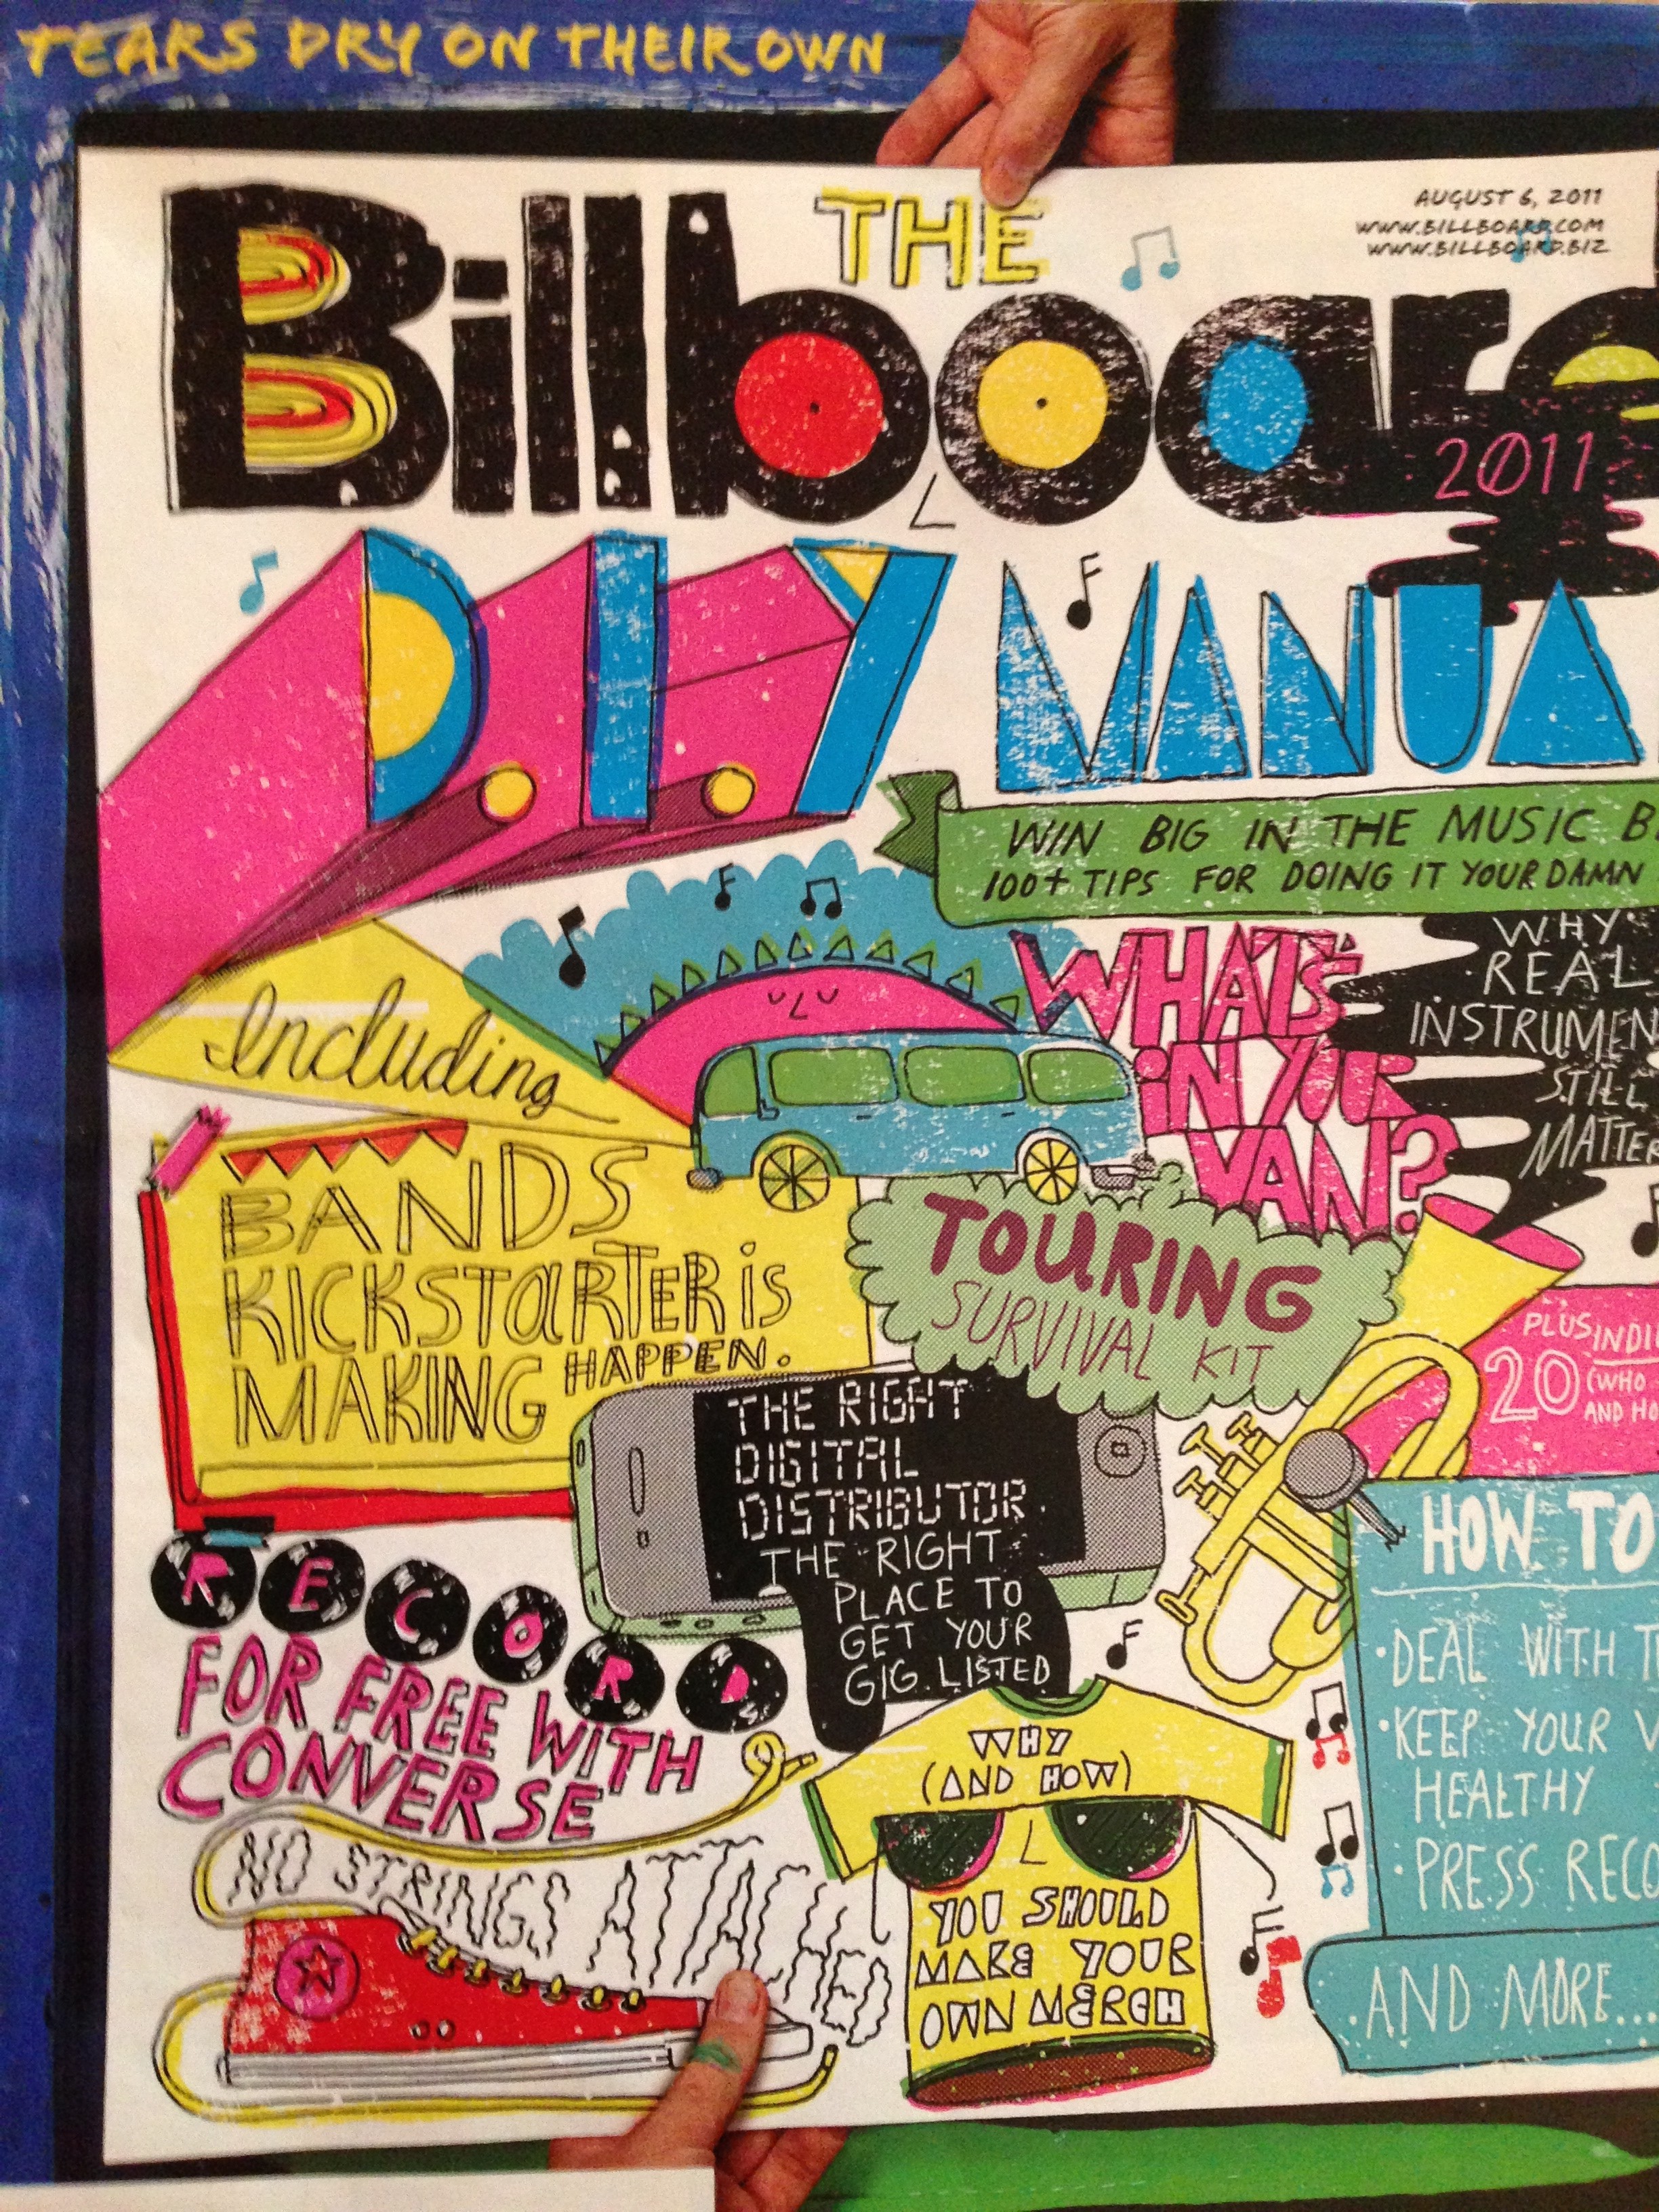 TEARS DRY ON THEIR OWN
AUGUST 6, 2011
WWW.BILLBOARD.COM
WWW.BILLBOARD.BIZ
THE
Billboard
2011
D.I.Y MANUA
WIN BIG IN THE MUSIC B
100+ TIPS FOR DOING IT YOUR DAMN
Including
WHAT'S
IN YOUR
VAN?
WHY
REAL
INSTRUMEN
STILL
MATTER
BANDS
KICKSTARTER IS
MAKING HAPPEN.
TOURING
SURVIVAL KIT
PLUS INDI
20 (WHO
AND HO
THE RIGHT
DIGITAL
DISTRIBUTOR
THE RIGHT
PLACE TO
GET YOUR
GIG LISTED
HOW TO
•DEAL WITH T
•KEEP YOUR V
HEALTHY
•PRESS RECO
•AND MORE...
RECORD
FOR FREE WITH
CONVERSE
NO STRINGS ATTACHED
WHY
(AND HOW)
YOU SHOULD
MAKE YOUR
OWN MERCH